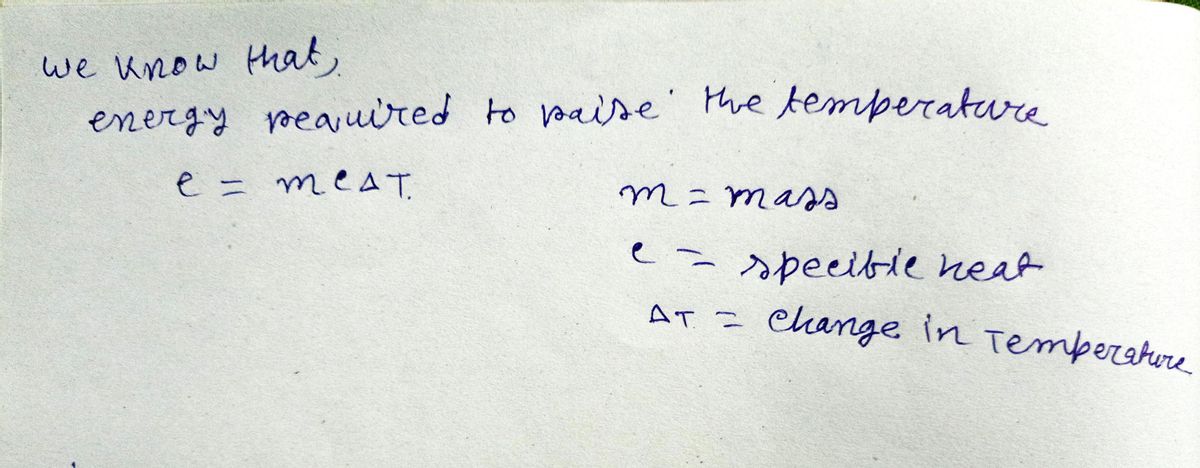 we know that,
energy required to raise the temperature
e = mcΔT.
m = mass
c = specific heat
ΔT = Change in Temperature